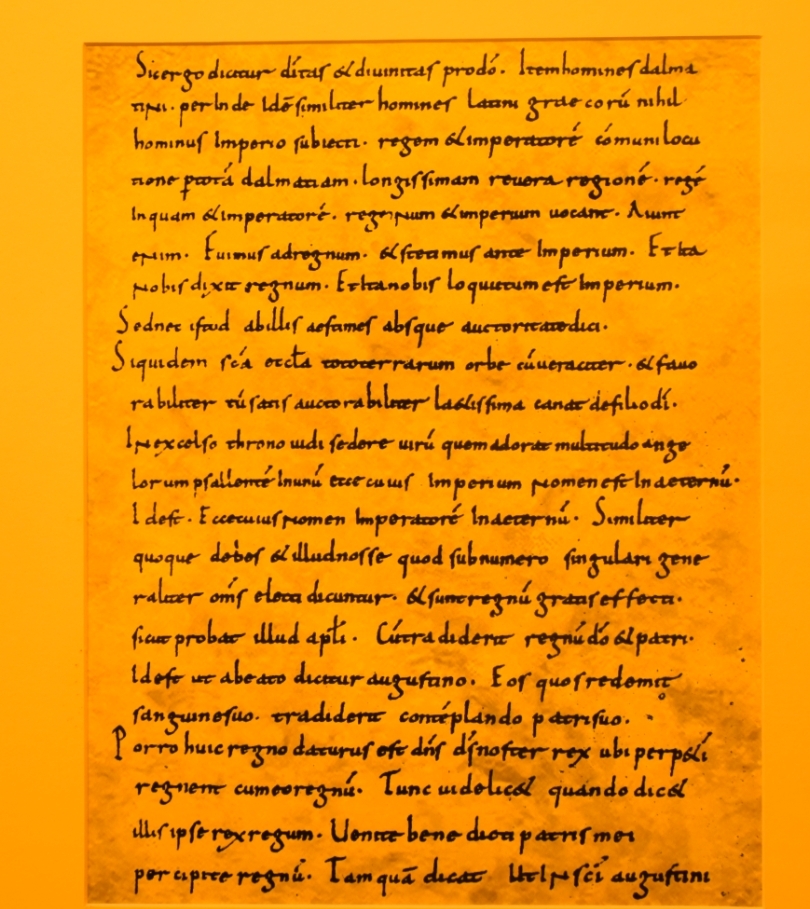 Sicergo dicitur ditas & diuinitas prodó. Item homines dalma
tini. perInde Idē similiter homines Latini grae corū nihil
hominus Imperio subiecti. regem & imperatorē cómuni locu
tione ptotā dalmatiam. longissimam reuera regionē. regē
Inquam & imperatorē. regeNum & imperium uocant. Aiunt
eNim. Fuimus adregnum. & stetimus ante Imperium. Et Ita
Nobis dixit regnum. Et Ita nobis loquutum est Imperium.
Sed nec istud abillis aestimes absque auctoritate dici.
Siquidem scā eccƚa tototerrarum orbe cū ueraciter. & fauo
rabiliter tū satis auctorabiliter la&issima canat defilio dī.
INexcelso throno uidi sedere uirū quem adorat multitudo ange
lorum psallentē Inunū ecce cuius Imperium Nomen est In aeternū.
Idest. Ecce cuius Nomen Imperatorē In aeternū. Similiter
quoque debes & illud nosse quod sub numero singulari gene
raliter oms electi dicuntur. & sunt regnū gratis effecti.
sicut probat illud apƚi. Cū tradiderit regnū dō & patri.
Idest ut abeato dicitur augustino. Eos quos redemit
sanguine suo. tradiderit contēplando patri suo.
Porro huic regno daturus est dns ds noster rex ubi perp&i
regnent cum eo regnū. Tunc uidelic& quando dic&
illis ipse rex regum. Uenite bene dicti patris mei
percipite regnū. Tamquā dicat Ut IN scī augustini